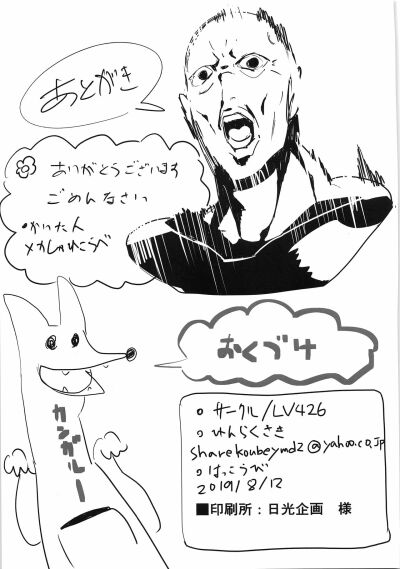 あとがき
ありがとうございます
ごめんなさい
・かいた人
メカしゃれこうべ
おくづけ
カンガルー
サークル/LV426
れんらくさき
sharekoubeymd2@yahoo.co.jp
はっこうび
2019/8/12
■印刷所：日光企画　様